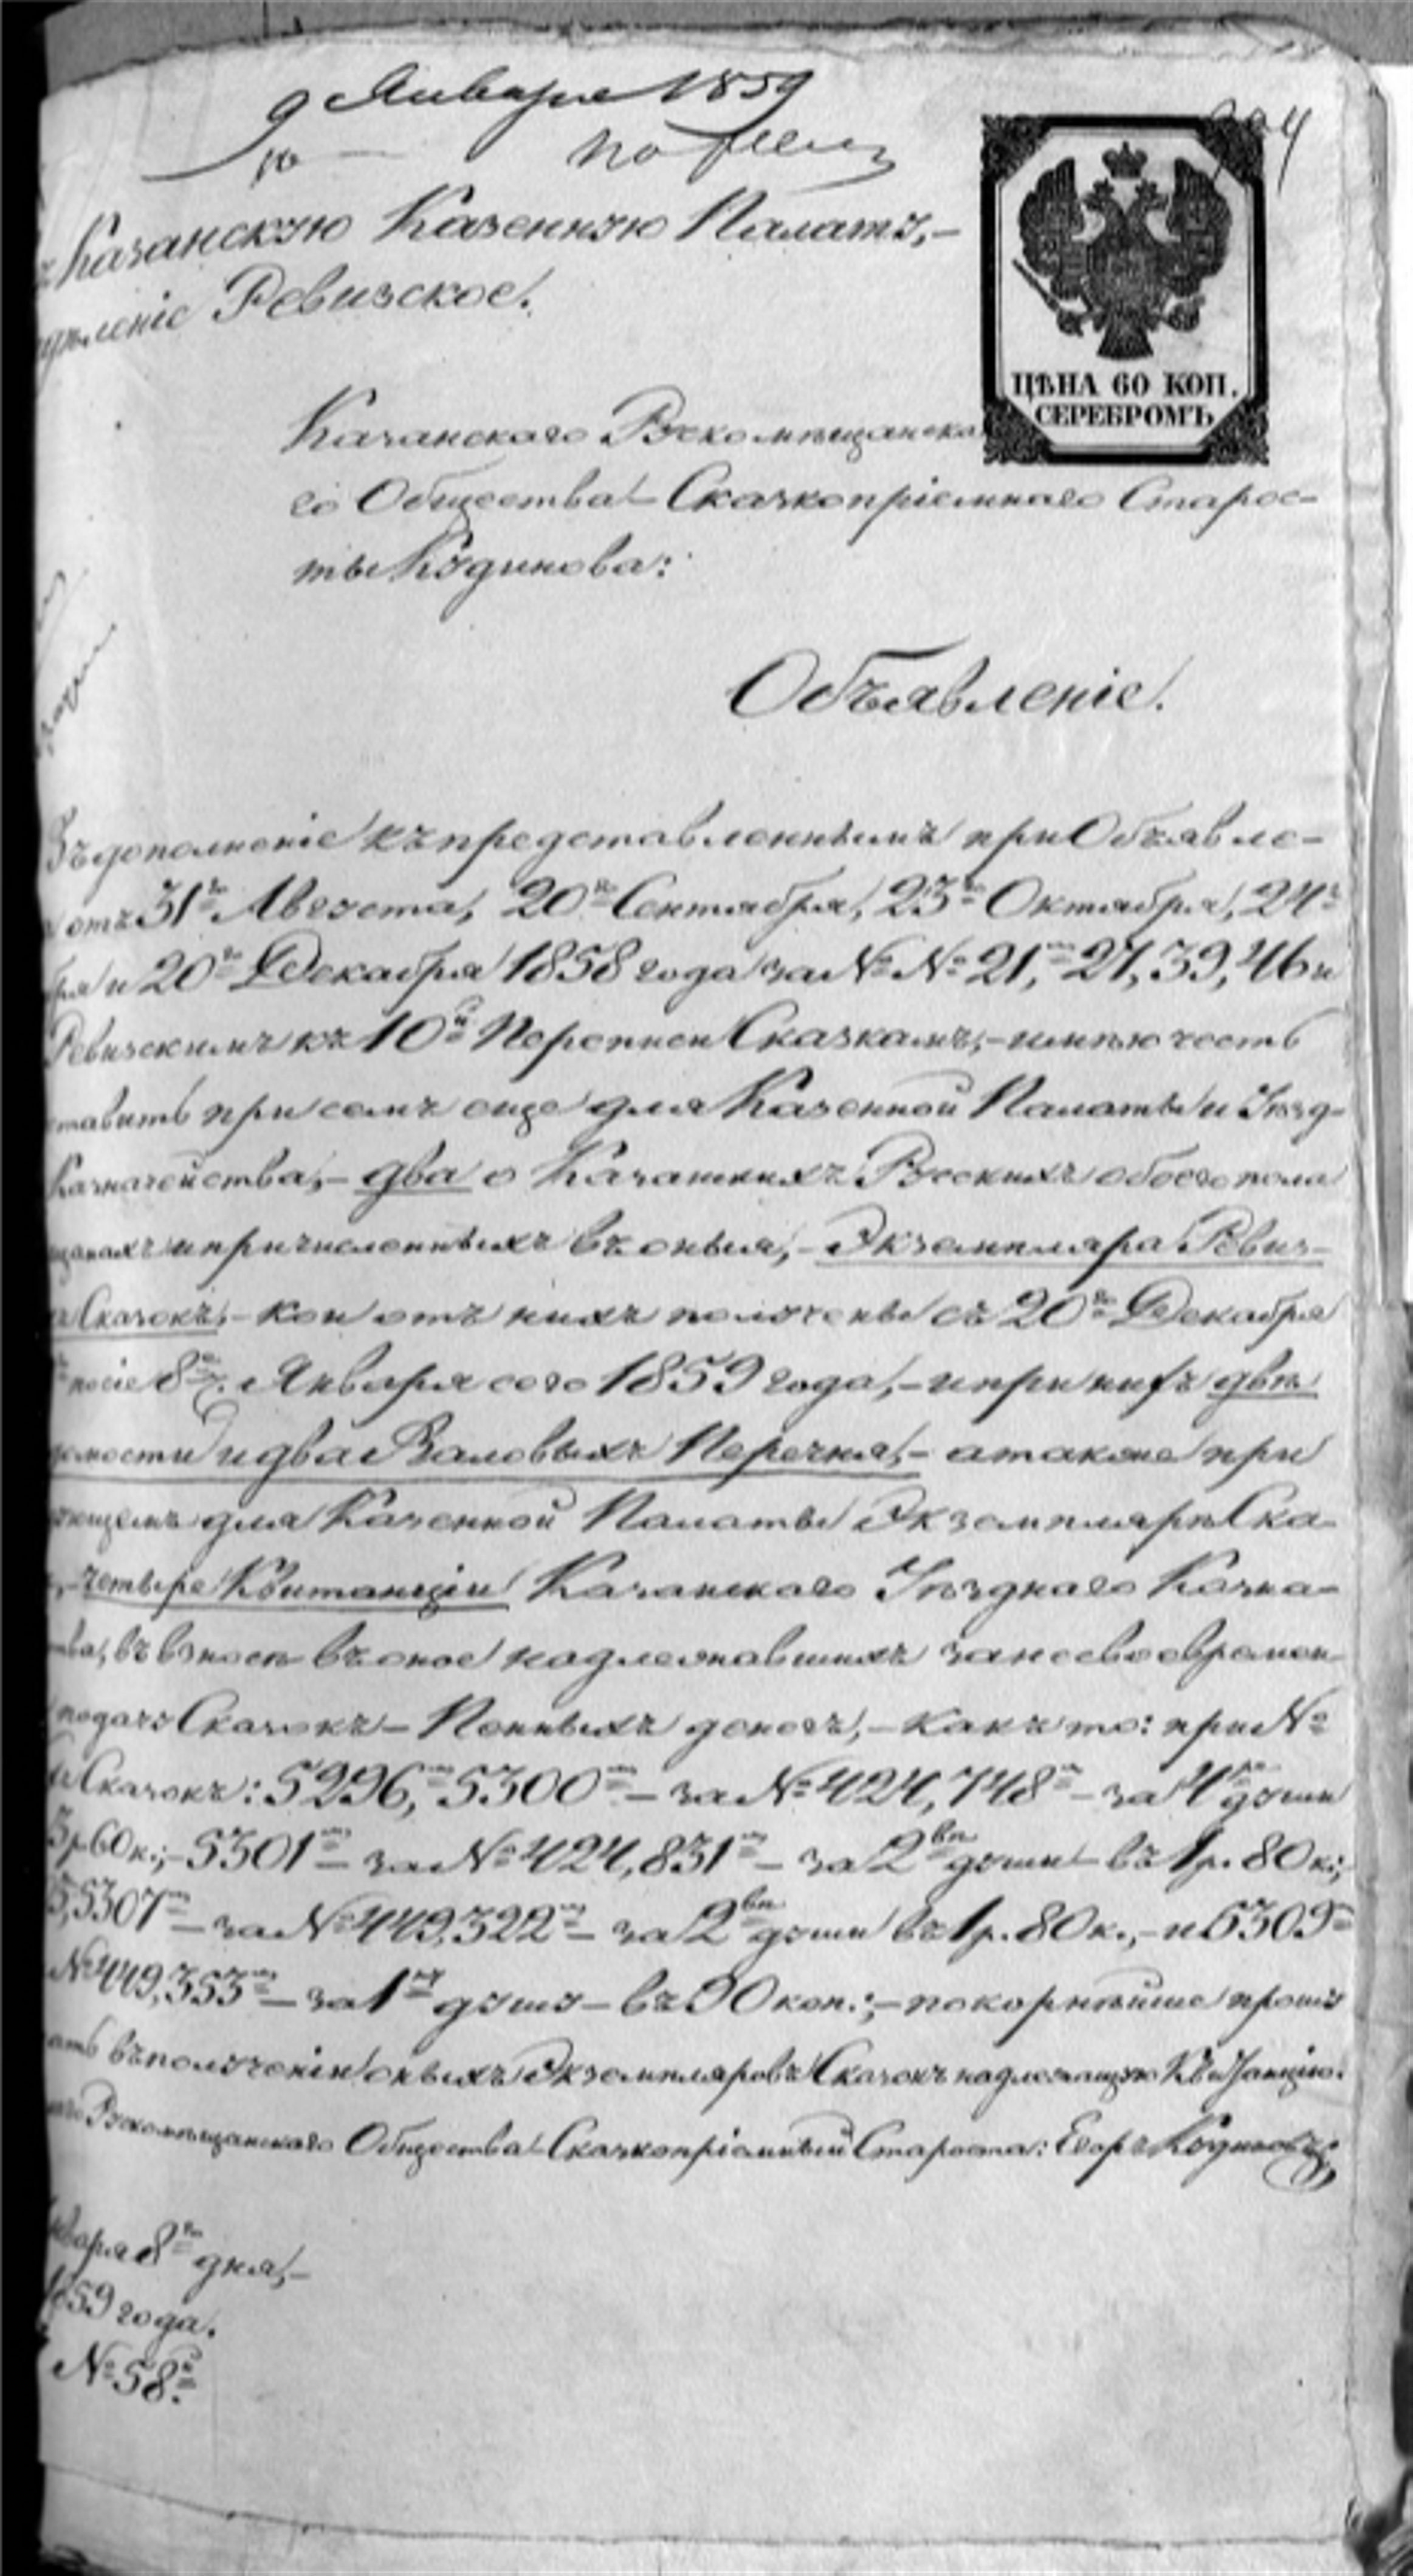 9 Января 1859
Казанскую Казенную Палату,-
дѣленіе Ревизское.
ЦѢНА 60 КОП.
СЕРЕБРОМЪ
Казанскаго Рускомѣщанска
го Общества Сказкопріемнаго Старос-
ты Кудинова:
Объявленіе.
Въ дополненіе къ представленнымъ при Объявле-
отъ 31го Августа, 20го Сентября, 23го Октября, 24го
бря и 20го Декабря 1858 года за №№ 21, 27, 39, 46 и
Ревизскимъ къ 10й Переписи Сказкамъ,- имѣю честь
ставить при семъ еще для Казенной Палаты и Уѣзд-
Казначейства,- два о Казанскихъ Рускихъ обоего пола
щанахъ и причисленныхъ въ оныя,- Экземпляра Ревиз-
Сказокъ,- кои отъ нихъ получены съ 20го Декабря
8е Января сего 1859 года,- и при нихъ двѣ
домости и два Валовыхъ Перечня,- а также при
жщемъ для Казенной Палаты Экземплярѣ Ска-
четыре Квитанціи Казанскаго Уѣзднаго Казна-
ства, въ взносѣ въ оное надлежавшихъ за несвоевремен-
подачу Сказокъ- Пенныхъ денегъ,- какъ то: при №
Сказокъ: 5296, 5300- за № 424,748- за 4ре души
3 р. 60 к.;- 5301- за № 424,831- за 2вѣ души- въ 1 р. 80 к.;
5307- за № 449,322- за 2вѣ души въ 1 р. 80 к.,- и 6309
№ 449,353- за 1ну душу- въ 90 коп.;- покорнѣйше прошу
ать въ полученіи оныхъ Экземпляровъ Сказокъ надлежащую Квитанцію.
Рускомѣщанскаго Общества Сказкопріемный Староста: Егоръ Кудиновъ
нваря 8го дня,-
1859 года.
№ 58.